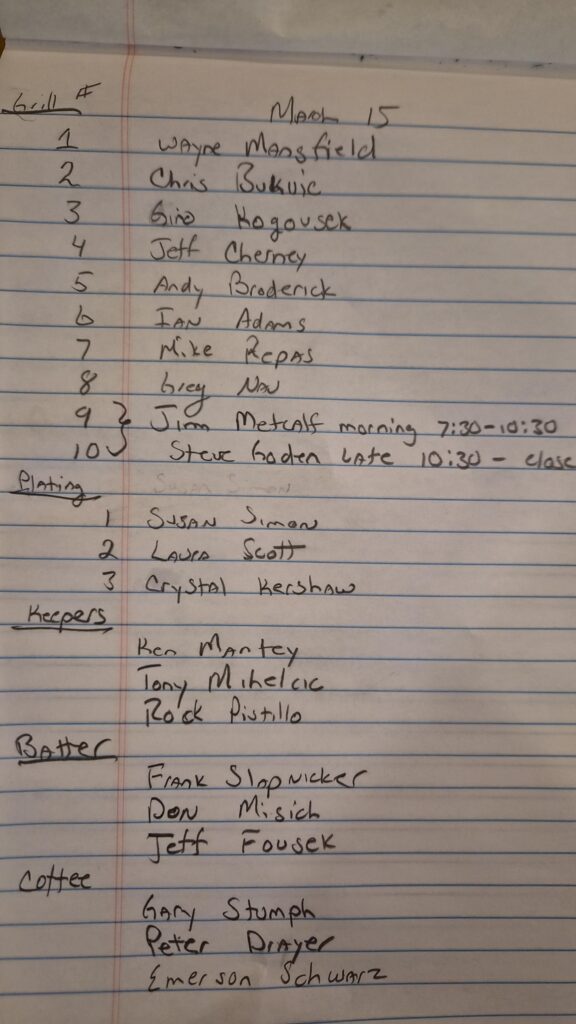 Grill #
March 15
1 Wayne Mansfield
2 Chris Bukvic
3 Gino Kogousek
4 Jeff Cherney
5 Andy Broderick
6 Ian Adams
7 Mike Repas
8 Greg
9 } Jim Metcalf morning 7:30-10:30
10 Steve Goden Late 10:30 - close
Plating
Susan Simon
1 Susan Simon
2 Laura Scott
3 Crystal Kershaw
Keepers
Ken Mantey
Tony Mihelcic
Rock Pistillo
Batter
Frank Slapnicker
Don Misich
Jeff Fousek
Coffee
Gary Stumph
Peter Drayer
Emerson Schwarz